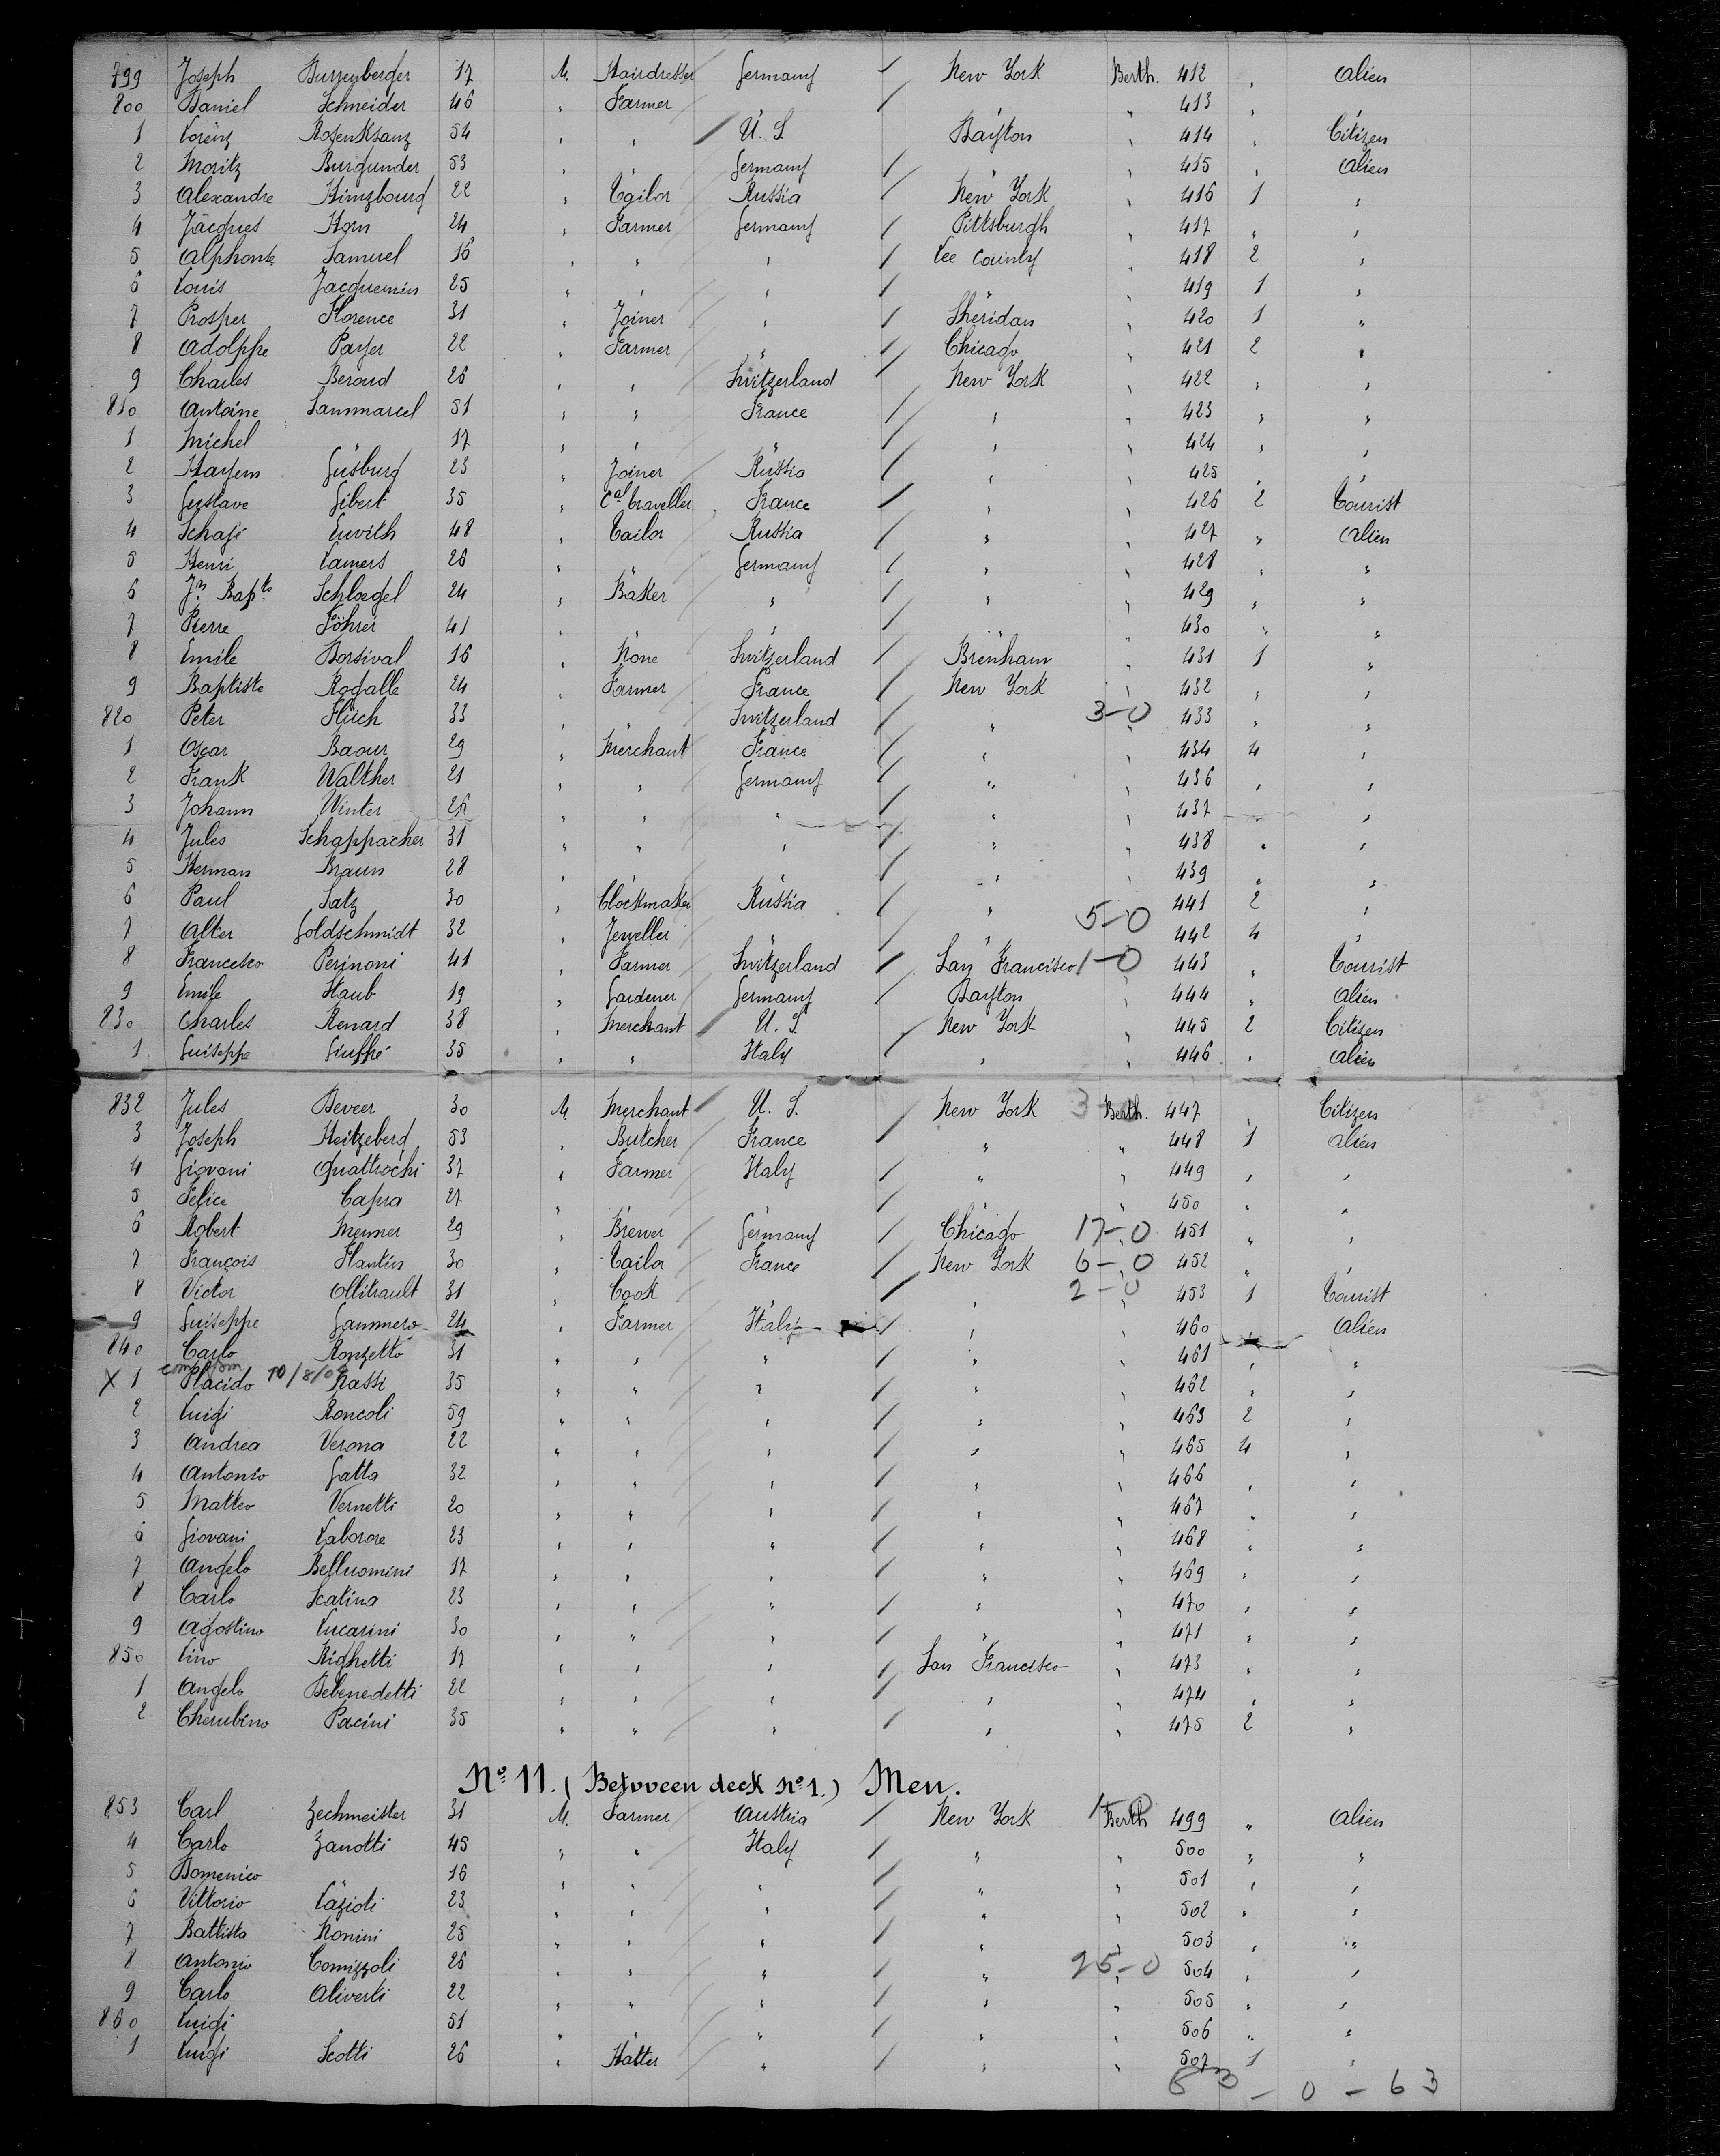 799 Joseph Burrenberger 17 M. Hairdresser Germany New York Berth. 412 " Alien
800 Daniel Schneider 46 " Farmer " " " 413 " "
1 Lorenz Rosenkranz 54 " " U. S. Dayton " 414 " Citizen
2 Moritz Burgunder 53 " " Germany " " 415 " Alien
3 Alexandre Hinzbourg 22 " Tailor Russia New York " 416 1 "
4 Jacques Horn 24 " Farmer Germany Pittsburgh " 417 " "
5 Alphonse Samuel 16 " " " Lee County " 418 2 "
6 Louis Jacquemin 25 " " " " " 419 1 "
7 Prosper Florence 31 " Joiner " Sheridan " 420 1 "
8 Adolphe Payer 22 " Farmer " Chicago " 421 2 "
9 Charles Beroud 26 " " Switzerland New York " 422 " "
810 Antoine Sanmarcel 51 " " France " " 423 " "
1 Michel " 17 " " " " " 424 " "
2 Hayem Gusburg 23 " Joiner Russia " " 425 " "
3 Gustave Gibert 35 " Cal traveller France " " 426 2 Tourist
4 Schaji Euvith 48 " Tailor Russia " " 427 " Alien
5 Henri Lamers 26 " " Germany " " 428 " "
6 Jn Bapte Schloegel 24 " Baker " " " 429 " "
7 Pierre Föhrer 41 " " " " " 430 " "
8 Emile Dorsival 16 " None Switzerland Brenham " 431 1 "
9 Baptiste Rogalle 24 " Farmer France New York " 432 " "
820 Peter Fluch 33 " " Switzerland " 3-0 " 433 " "
1 Oscar Baour 29 " Merchant France " " 434 4 "
2 Frank Walther 21 " " Germany " " 436 " "
3 Johann Winter 26 " " " " " 437 " "
4 Jules Schappacher 31 " " " " " 438 " "
5 Herman Braun 28 " " " " " 439 " "
6 Paul Satz 30 " Clockmaker Russia " " 441 2 "
7 Alter Goldschmidt 32 " Jeweller " " 5-0 " 442 4 "
8 Francesco Perinoni 41 " Farmer Switzerland San Francisco 1-0 443 " Tourist
9 Emile Staub 19 " Gardener Germany Dayton " 444 " Alien
830 Charles Renard 38 " Merchant U. S. New York " 445 2 Citizen
1 Guiseppe Giuffré 35 " " Italy " " 446 " Alien
832 Jules Beveer 30 M. Merchant U. S. New York 3 Berth. 447 " Citizen
3 Joseph Heitzeberg 53 " Butcher France " " 448 1 Alien
4 Giovani Quattrochi 37 " Farmer Italy " " 449 " "
5 Felice Capra 27 " " " " " 450 " "
6 Robert Menner 29 " Brewer Germany Chicago 17-0 451 " "
7 François Flantin 30 " Tailor France New York 6-0 452 " "
8 Victor Ollitrault 31 " Cook " " 2-0 " 453 1 Tourist
9 Guiseppe Gammero 24 " Farmer Italy " " 460 " Alien
840 Carlo Ronzetto 31 " " " " " 461 " "
10/8/04
X 1 Placido Nassi 35 " " " " " 462 " "
2 Luigi Roncoli 59 " " " " " 463 2 "
3 Andrea Verona 22 " " " " " 465 4 "
4 Antonio Gatta 32 " " " " " 466 " "
5 Matteo Vernetti 20 " " " " " 467 " "
6 Giovani Laborore 23 " " " " " 468 " "
7 Angelo Belluomini 17 " " " " " 469 " "
8 Carlo Scatina 23 " " " " " 470 " "
9 Agostino Lucarini 30 " " " " " 471 " "
850 Lino Righetti 17 " " " San Francisco " 473 " "
1 Angelo Debenedetti 22 " " " " " 474 " "
2 Cherubino Pacini 35 " " " " " 475 2 "
No 11. (Between deck No 1.) Men.
853 Carl Zechmeister 31 M. Farmer Austria New York Berth 499 " Alien
4 Carlo Zanotti 45 " " Italy " " 500 " "
5 Domenico " 16 " " " " " 501 " "
6 Vittorio Lazioli 23 " " " " " 502 " "
7 Battista Nonini 25 " " " " " 503 " "
8 Antonio Comizzoli 26 " " " " 25-0 504 " "
9 Carlo Aliverti 22 " " " " " 505 " "
860 Luigi " 51 " " " " " 506 " "
1 Luigi Scotti 26 " Hatter " " " 507 1 "
63 - 0 - 63